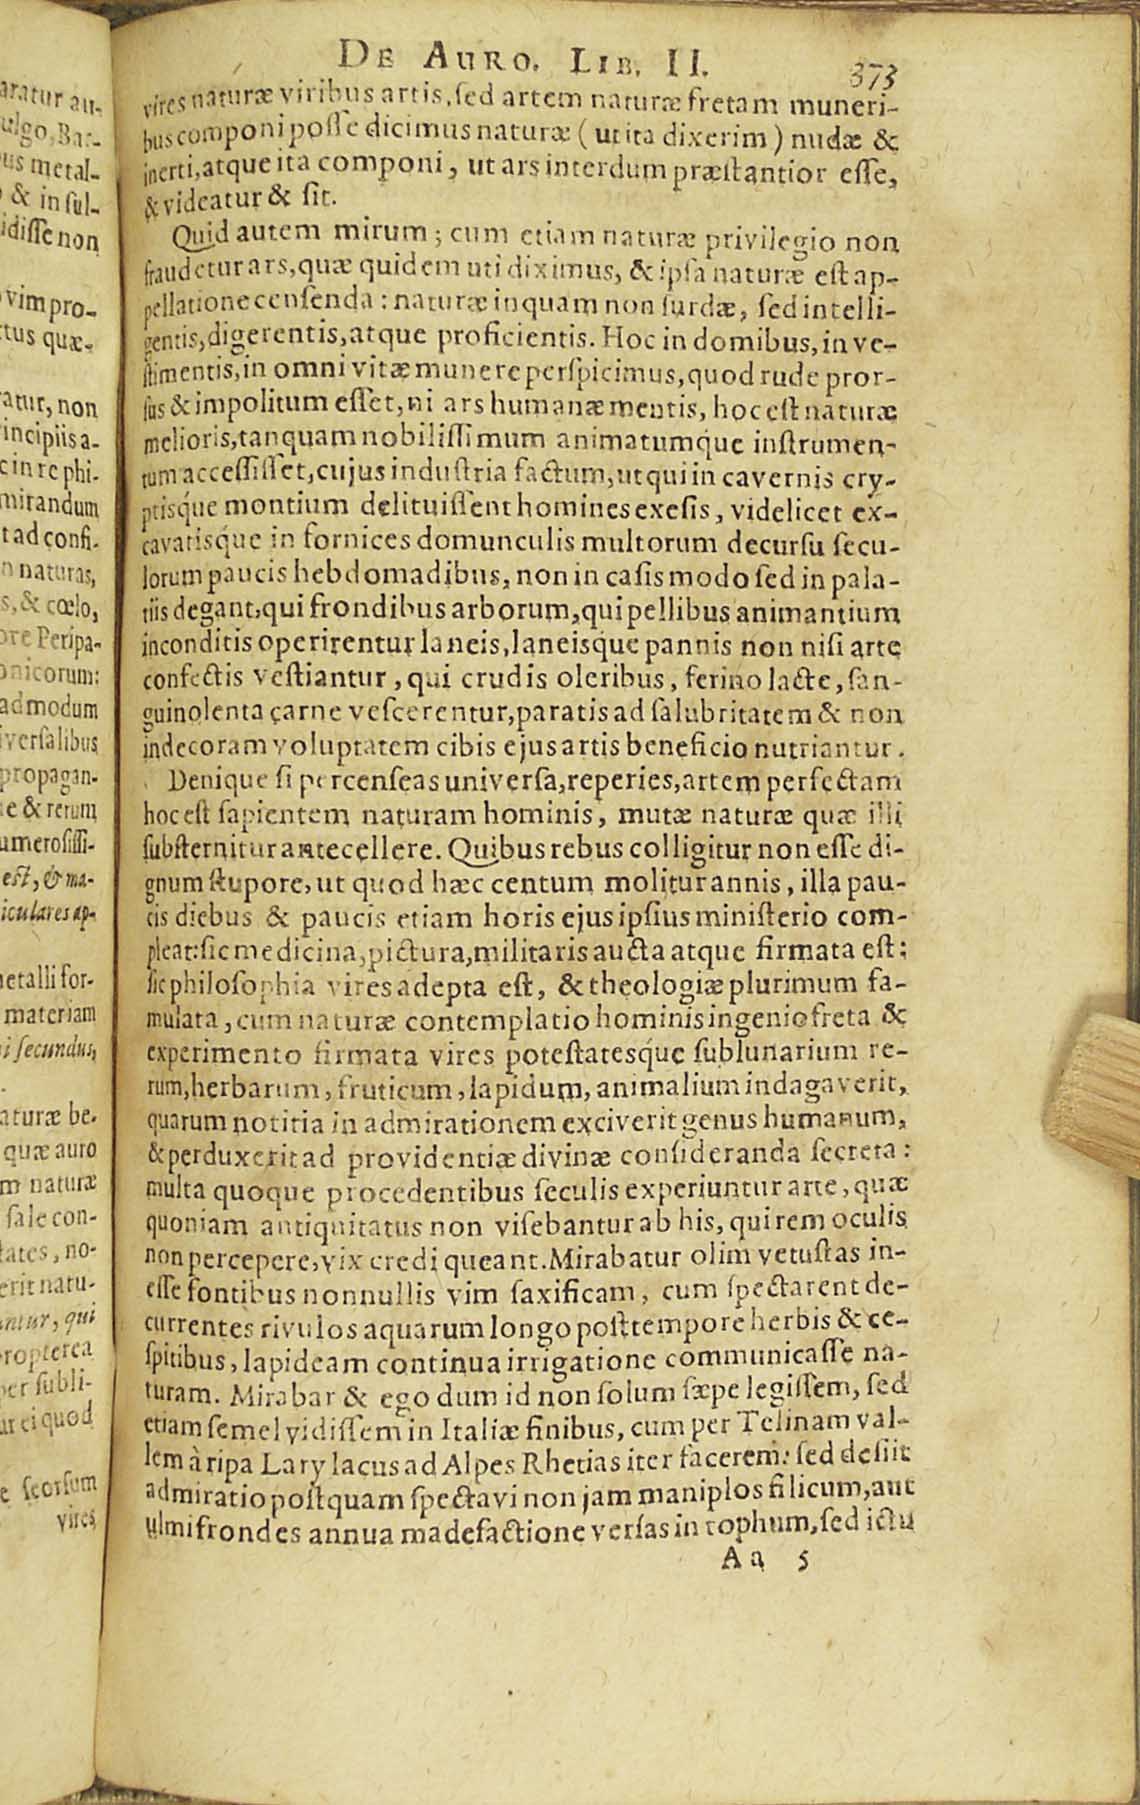 aratur au-
ulgo, Bac-
bus metal-
& in sul-
idisse non
vim pro-
ctus quæ-
atur, non
rincipiis a-
c in re phi-
mirandum
t ad confi-
n naturas,
s, & cœlo,
ore Peripa-
onicorum:
admodum
iversalibus
propagan-
e & rerum
umerosissi-
est, & ma-
iculares ap-
metalli for-
materiam
i secundus,
aturæ be-
quæ auro
m naturæ
sale con-
tates, no-
erit natu-
antur, qui
propterea
per subli-
ur ei quod
e seorsum
vires
DE AURO. LIB. II. 373
vires naturæ viribus artis, sed artem naturæ fretam muneri-
bus componi posse dicimus naturæ ( ut ita dixerim ) nudæ &
inerti, atque ita componi, ut ars interdum præstantior esse,
& videatur & sit.
Quid autem mirum; cum etiam naturæ privilegio non
fraudetur ars, quæ quidem uti diximus, & ipsa naturæ est ap-
pellatione censenda: naturæ inquam non surdæ, sed intelli-
gentis, digerentis, atque proficientis. Hoc in domibus, in ve-
stimentis, in omni vitæ munere perspicimus, quod rude pror-
sus & impolitum esset, ni ars humanæ mentis, hoc est naturæ
melioris, tanquam nobilissimum animatumq́ue instrumen-
tum accessisset, cujus industria factum, ut qui in cavernis cry-
ptisq́ue montium delituissent homines exesis, videlicet ex-
cavatisq́ue in fornices domunculis multorum decursu secu-
lorum paucis hebdomadibus, non in casis modo sed in pala-
tiis degant, qui frondibus arborum, qui pellibus animantium
inconditis operirentur laneis, laneisque pannis non nisi arte
confectis vestiantur, qui crudis oleribus, ferino lacte, san-
guinolenta carne vescerentur, paratis ad salubritatem & non
indecoram voluptatem cibis ejus artis beneficio nutriantur.
Denique si percenseas universa, reperies, artem perfectam
hoc est sapientem naturam hominis, mutæ naturæ quæ illi
substernitur antecellere. Quibus rebus colligitur non esse di-
gnum stupore, ut quod hæc centum molitur annis, illa pau-
cis diebus & paucis etiam horis ejus ipsius ministerio com-
pleat: sic medicina, pictura, militaris aucta atque firmata est:
sic philosophia vires adepta est, & theologiæ plurimum fa-
mulata, cum naturæ contemplatio hominis ingenio freta &
experimento firmata vires potestatesq́ue sublunarium re-
rum, herbarum, fruticum, lapidum, animalium indagaverit,
quarum notitia in admirationem exciverit genus humanum,
& perduxerit ad providentiæ divinæ consideranda secreta:
multa quoque procedentibus seculis experiuntur arte, quæ
quoniam antiquitatus non visebantur ab his, qui rem oculis
non percepere, vix credi queant. Mirabatur olim vetustas in-
esse fontibus nonnullis vim saxificam, cum spectarent de-
currentes rivulos aquarum longo post tempore herbis & ce-
spitibus, lapideam continua irrigatione communicasse na-
turam. Mirabar & ego dum id non solum sæpe legissem, sed
etiam semel vidissem in Italiæ finibus, cum per Telinam val-
lem à ripa Lary lacus ad Alpes Rhetias iter facerem: sed desiit
admiratio postquam spectavi non jam maniplos filicum, aut
ulmi frondes annua madefactione versas in tophum, sed ictu
Aa 5